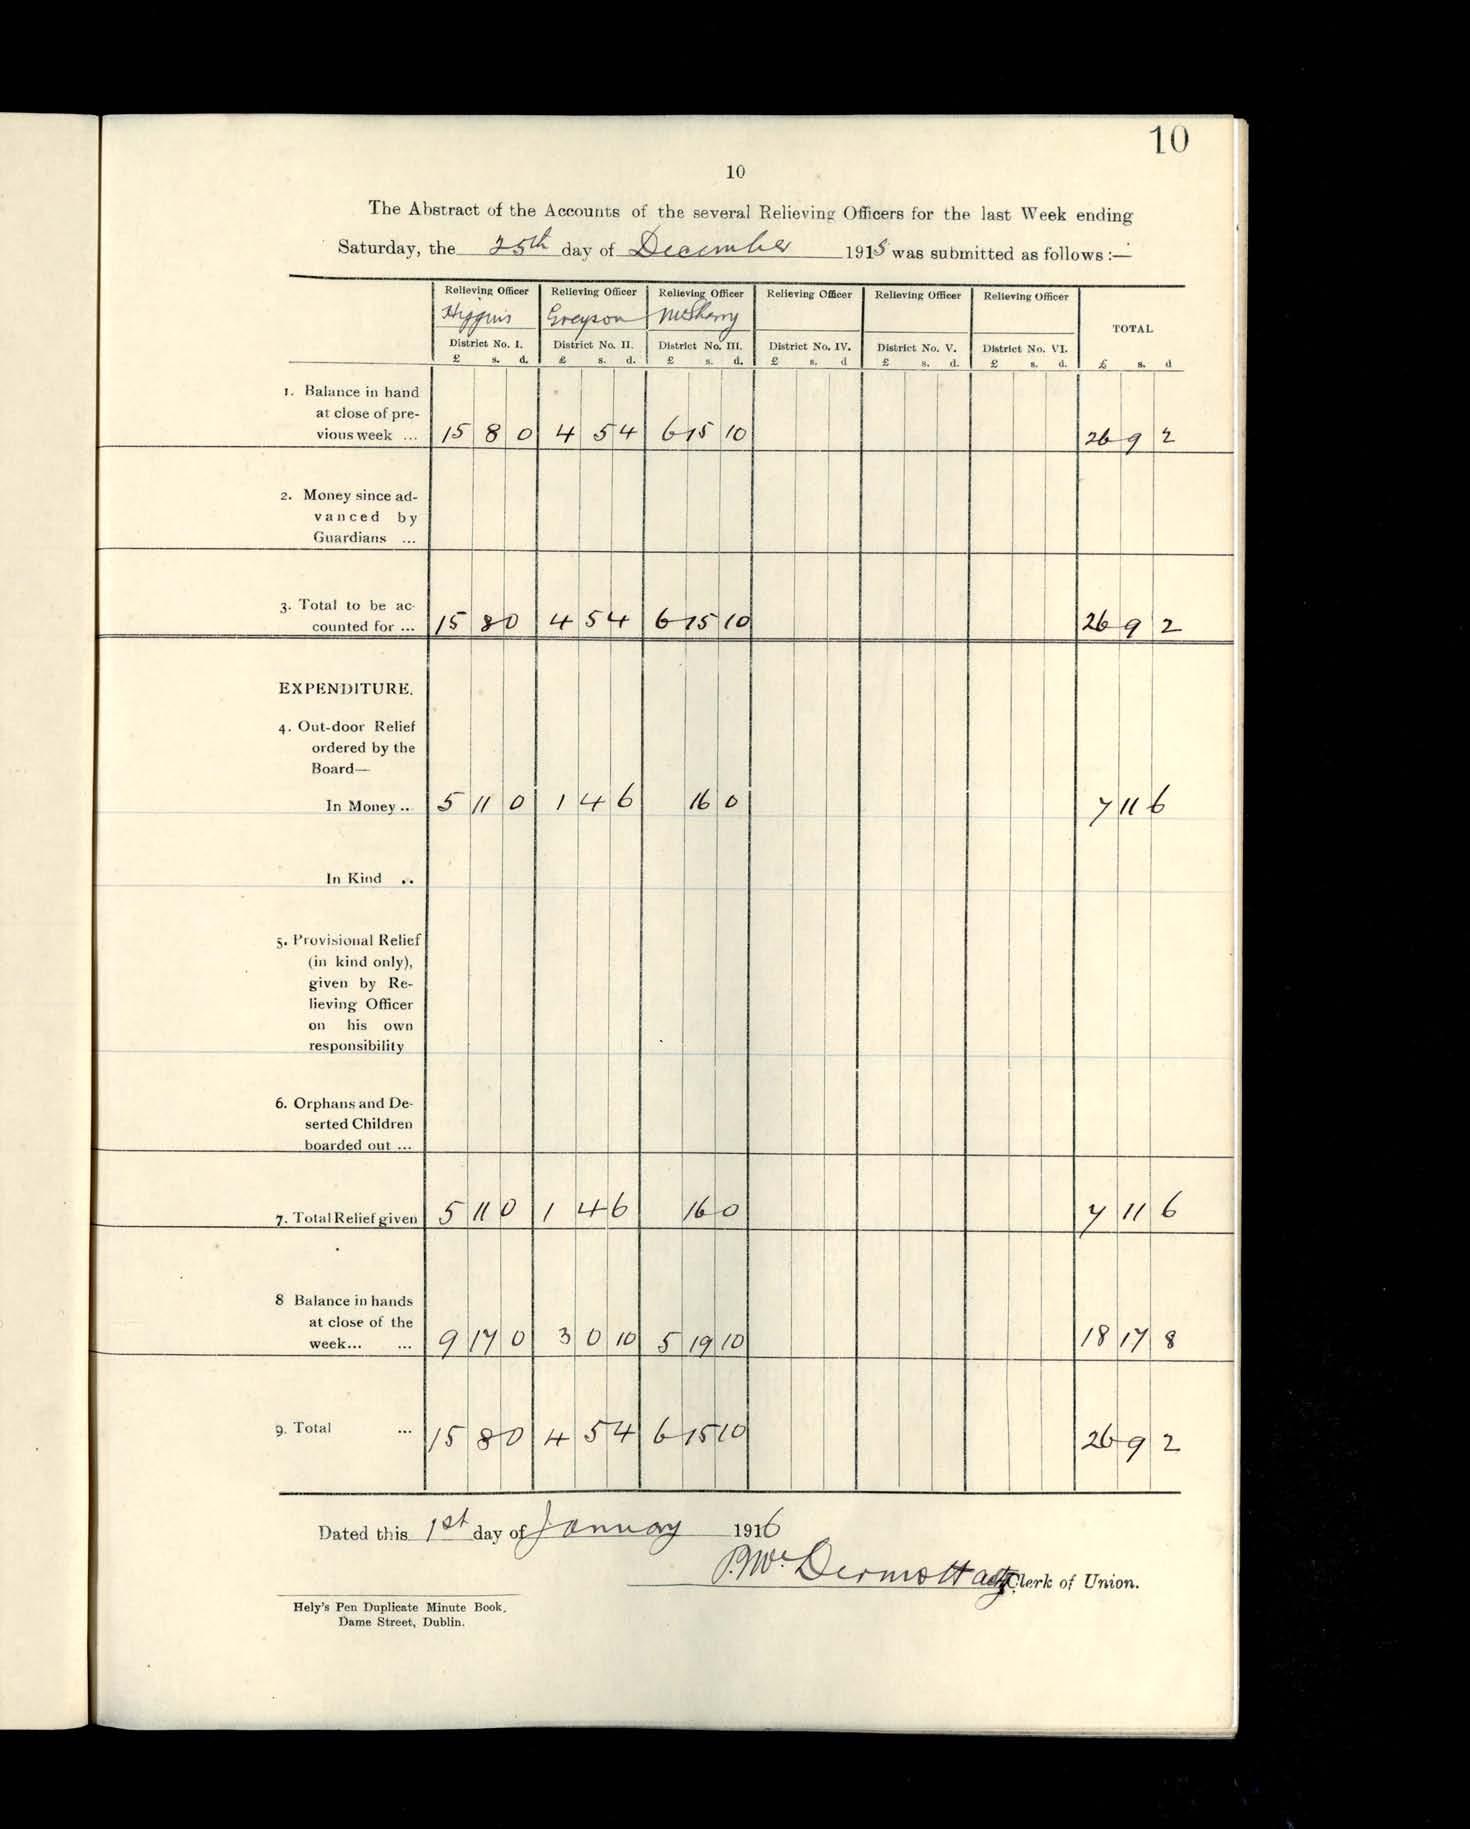 10
10
The Abstract of the Accounts of the several Relieving Officers for the last Week ending
Saturday, the 25th day of December 1915 was submitted as follows :—
Relieving Officer Relieving Officer Relieving Officer Relieving Officer Relieving Officer Relieving Officer
Higgins Greyson McSherry
TOTAL
District No. I. District No. II. District No. III. District No. IV. District No. V. District No. VI.
£ s. d. £ s. d. £ s. d. £ s. d £ s. d. £ s. d. £ s. d
1. Balance in hand
at close of pre-
vious week ... 15 8 0 4 5 4 6 15 10 26 9 2
2. Money since ad-
vanced by
Guardians ...
3. Total to be ac-
counted for ... 15 8 0 4 5 4 6 15 10 26 9 2
EXPENDITURE.
4. Out-door Relief
ordered by the
Board—
In Money .. 5 11 0 1 4 6 16 0 7 11 6
In Kind ..
5. Provisional Relief
(in kind only),
given by Re-
lieving Officer
on his own
responsibility
6. Orphans and De-
serted Children
boarded out ...
7. Total Relief given 5 11 0 1 4 6 16 0 7 11 6
8 Balance in hands
at close of the
week... ... 9 17 0 3 0 10 5 19 10 18 17 8
9. Total ... 15 8 0 4 5 4 6 15 10 26 9 2
Dated this 1st day of January 1916
P. McDermott actg Clerk of Union.
Hely's Pen Duplicate Minute Book,
Dame Street, Dublin.